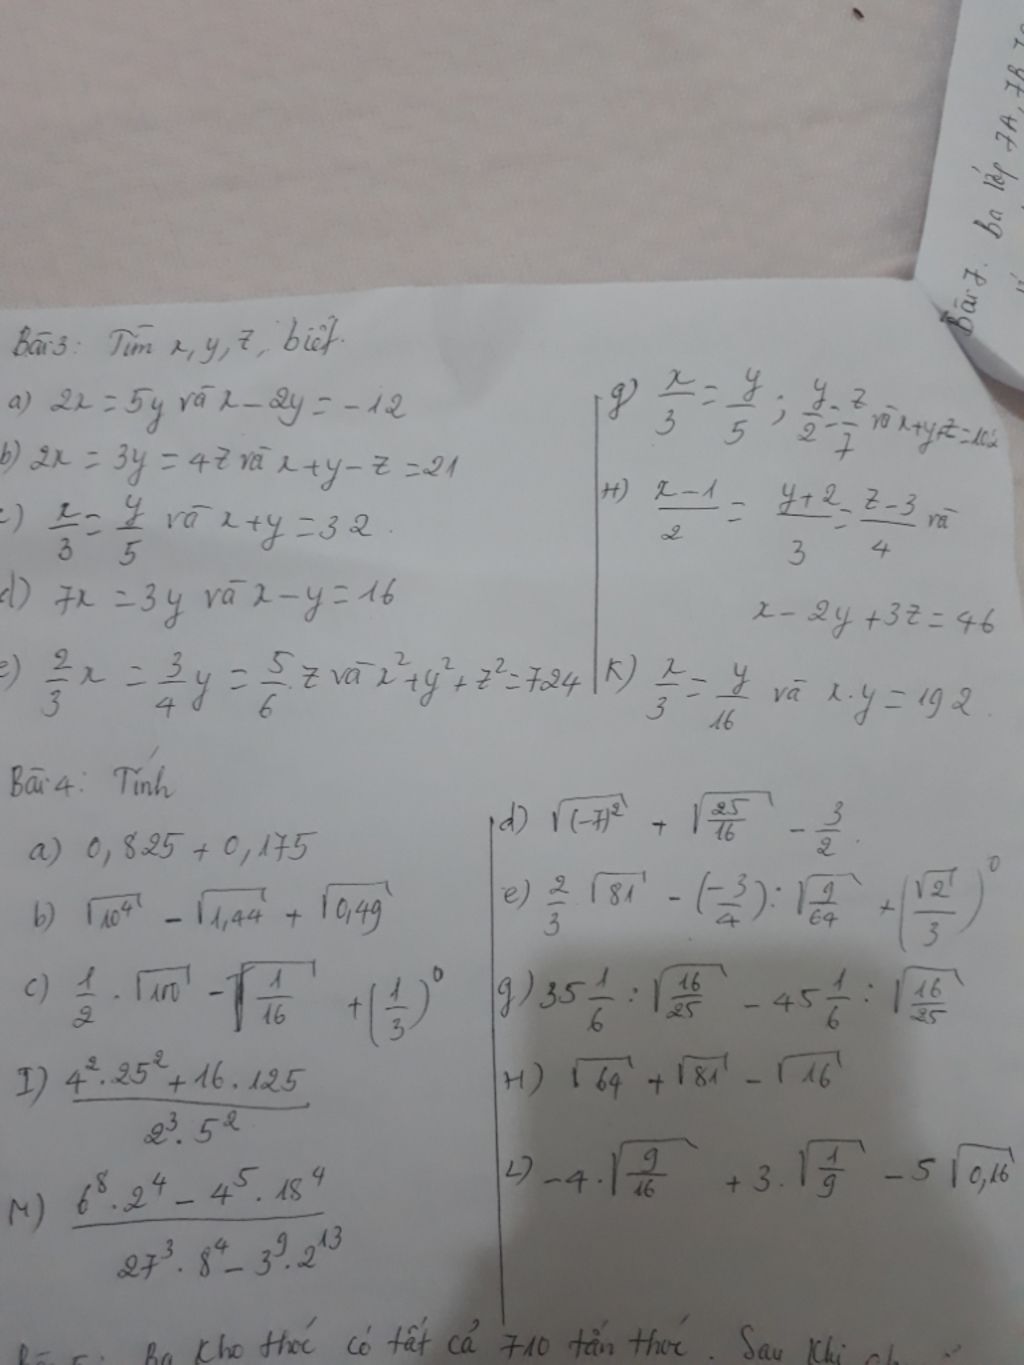 Bài 3: Tìm x, y, z, biết.
a) 2x = 5y và x - 2y = -12
b) 2x = 3y = 4z và x + y - z = 21
c) x/3 = y/5 và x + y = 32.
d) 7x = 3y và x - y = 16
e) 2/3 x = 3/4 y = 5/6 . z và x² + y² + z² = 724
g) x/3 = y/5 ; y/2 = z/7 và x + y + z = 102
H) (x-1)/2 = (y+2)/3 = (z-3)/4 và
x - 2y + 3z = 46
K) x/3 = y/16 và x.y = 192.
Bài 4: Tính
a) 0,825 + 0,175
b) √10⁴ - √1,44 + √0,49
c) 1/2 . √100 - √(1/16) + (1/3)⁰
I) (4².25² + 16.125)/(2³.5²)
M) (6⁸.2⁴ - 4⁵.18⁴)/(27³.8⁴ - 3⁹.2¹³)
d) √(-7)² + √(25/16) - 3/2.
e) 2/3 . √81 - (-3/4) : √(9/64) + (√2/3)⁰
g) 35 1/6 : √(16/25) - 45 1/6 : √(16/25)
H) √64 + √81 - √16
L) -4.√(9/16) + 3.√(1/9) - 5√0,16
Ba kho thóc có tất cả 710 tấn thóc. Sau khi
Bài 7. Ba lớp 7A, 7B